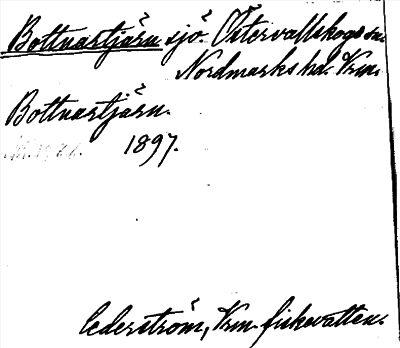 Bottnartjärn sjö. Östervallskogs sn.
Nordmarks hd. Vrm.
Bottnartjärn.
1897.
Cederström, Vrm. fiskevatten.